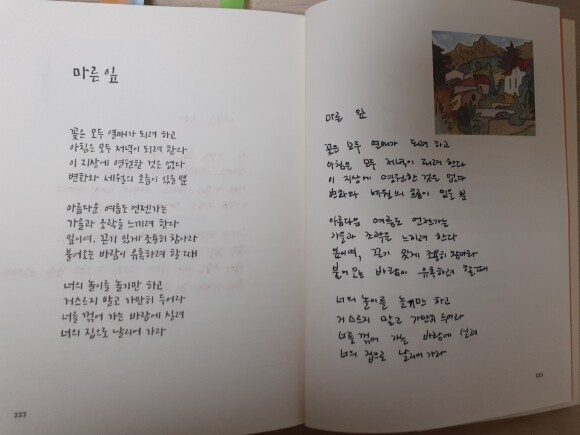 마른 잎
꽃은 모두 열매가 되려 하고
아침은 모두 저녁이 되려 한다
이 지상에 영원한 것은 없다
변화와 세월의 흐름이 있을 뿐
아름다운 여름도 언젠가는
가을과 조락을 느끼려 한다
잎이여, 끈기 있게 조용히 참아라
불어오는 바람이 유혹하려 할 때
너의 놀이를 놀기만 하고
거스르지 말고 가만히 두어라
너를 꺾어 가는 바람에 실려
너의 집으로 날리어 가라
222
마른 잎
꽃은 모두 열매가 되려 하고
아침은 모두 저녁이 되려 한다
이 지상에 영원한 것은 없다
변화와 세월의 흐름이 있을 뿐
아름다운 여름도 언젠가는
가을과 조락을 느끼려 한다
잎이여, 끈기 있게 조용히 참아라
불어 오는 바람이 유혹하려 할 때
너의 놀이를 놀기만 하고
거스르지 말고 가만히 두어라
너를 꺾어 가는 바람에 실려
너의 집으로 날리어 가라
223